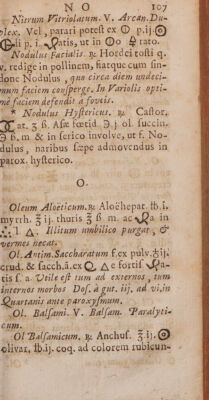 N O 107
Nitrum Vitriolatum. V. Arcan. Du-
plex. Vel, parari potest ex 🜔 p.ij.
li p. i. ratis, ut in rato.
Nodulus Facialis. ℞ Hordei tosti q.
v. redige in pollinem, fiatque cum sin-
done Nodulus, quo circa diem undeci-
mum faciem consperge. In Variolis opti-
me faciem defendit a foveis.
* Nodulus Hystericus. ℞ Castor.
at. ʒ ß. Asæ fœtid. ℈. j ol. succin.
℈ ß. m. & in serico involve, ut f. No-
dulus, naribus sæpe admovendus in
parox. hysterico.
O.
Oleum Aloëticum. ℞ Aloëhepat. ℔. i.
myrrh. ℥ ij. thuris ℥ ß. m. ac a in
1 🜂. Illitum umbilico purgat, &
vermes necat.
Ol. Antim. Saccharatum f. ex pulv. ♁ij.
crud. & sacch. a. ex fortif. a-
tis s. a. Utile est tum ad externos, tum
internos morbos Dos. à gut. iij. ad vi. in
Quartanis ante paroxysmum.
Ol. Balsami. V. Balsam. Paralyti-
cum.
Ol Balsamicum. ℞ Anchus. ℥ ij.
olivar. ℔. iij. coq. ad colorem rubicun-